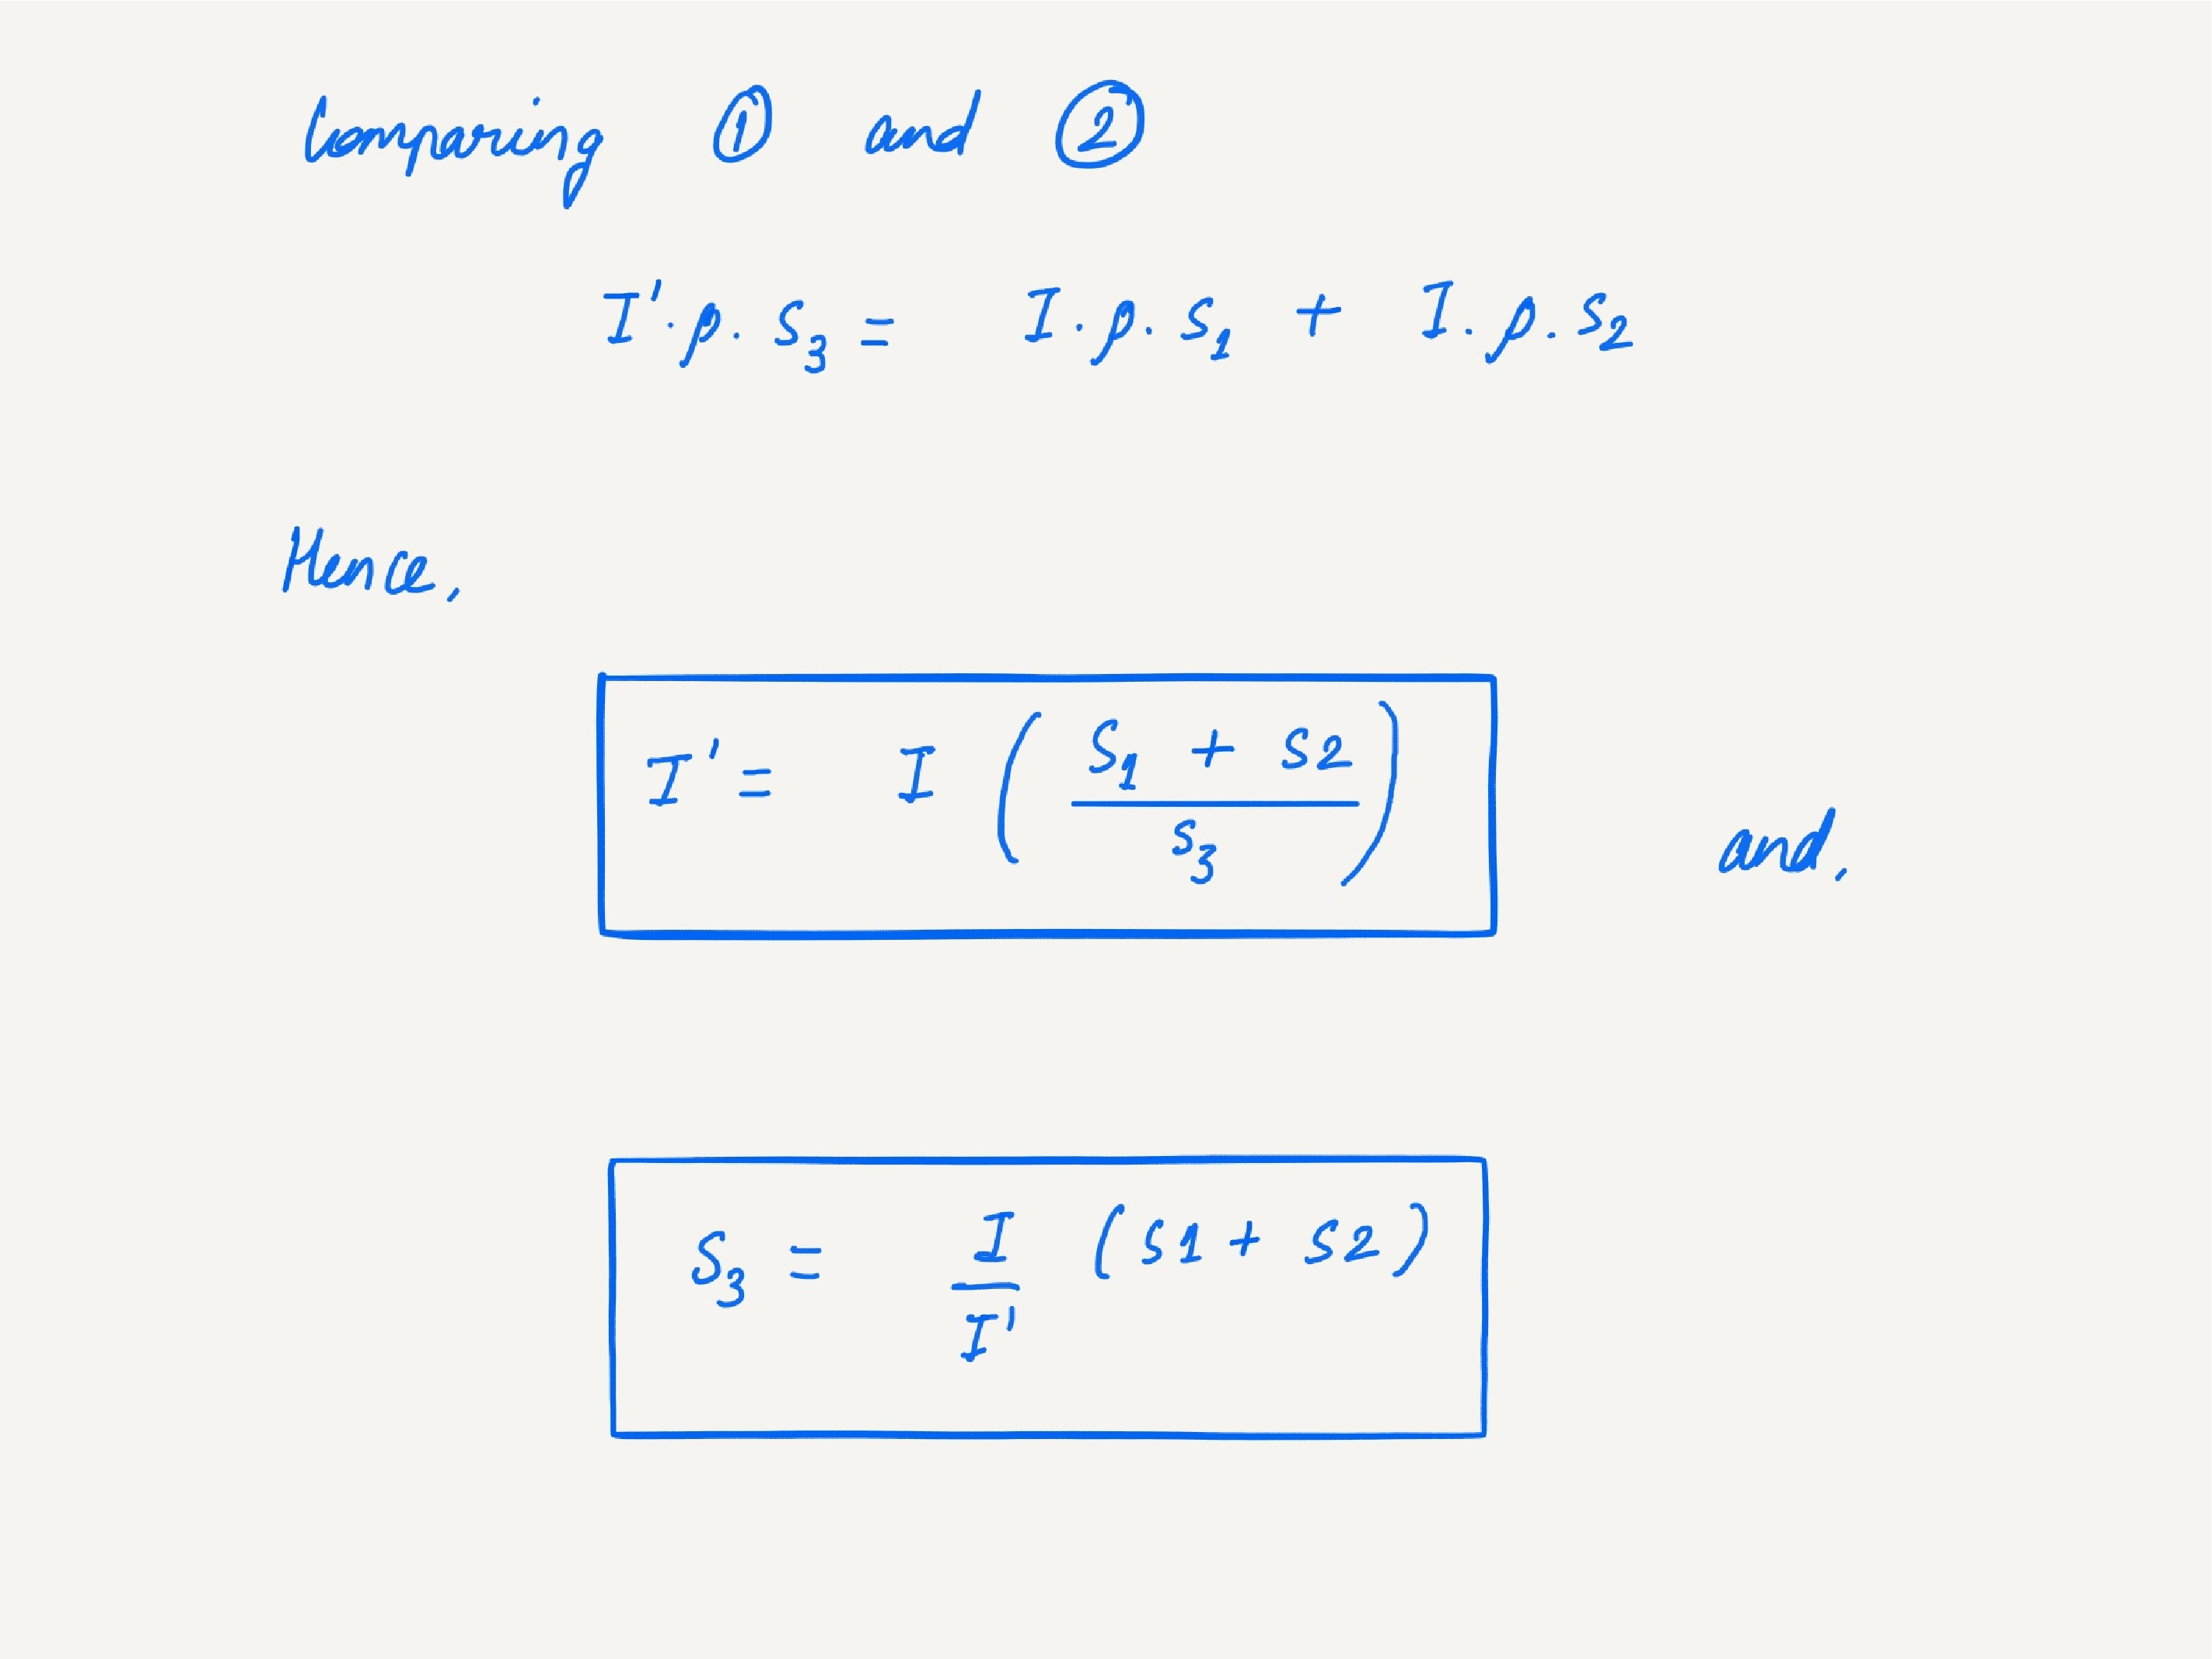 Comparing ① and ②
I'.ρ.S₃ = I.ρ.S₁ + I.ρ.S₂
Hence,
I' = I ( (S₁ + S2) / S₃ ) and,
S₃ = I / I' (S1 + S2)